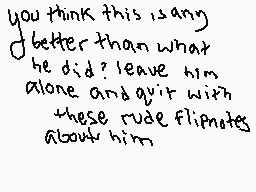 you think this is any
better than what
he did? leave him
alone and quit with
these rude flipnotes
about him